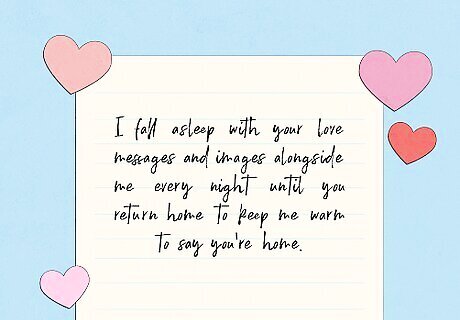 I fall asleep with your love
messages and images alongside
me every night until you
return home to keep me warm
to say you're home.